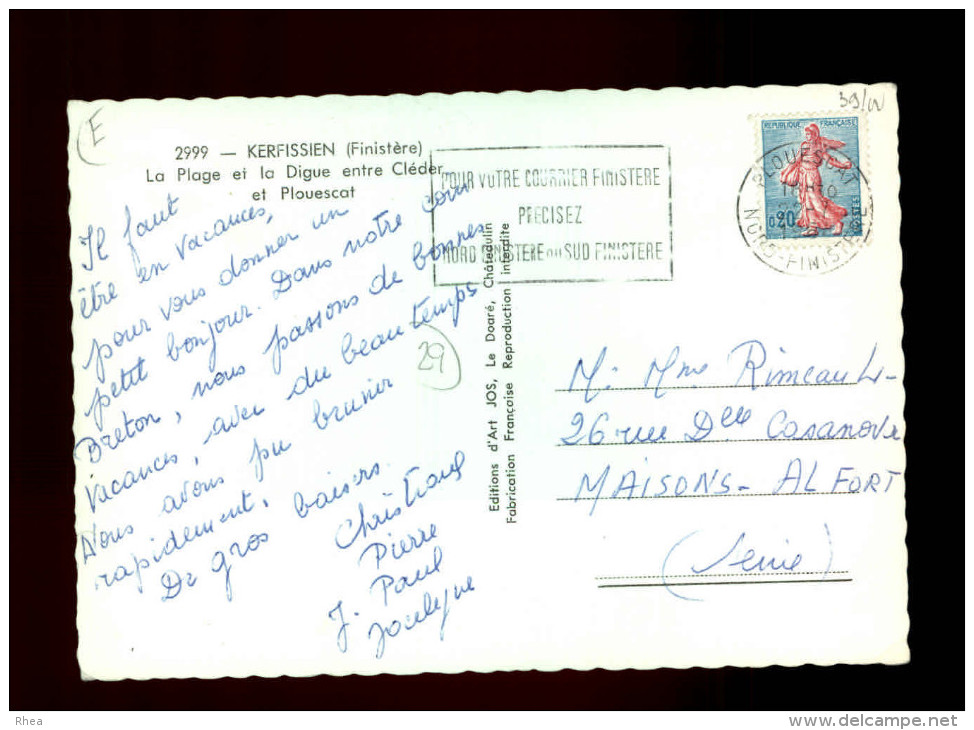 E
2999 — KERFISSIEN (Finistère)
La Plage et la Digue entre Cléder
et Plouescat
Il faut
être en vacances,
pour vous donner un
petit bonjour. Dans notre coin
Breton, nous passons de bonnes
vacances, avec du beau temps
Nous avons pu brunir
rapidement.
De gros baisers.
Christiane
Pierre
J. Paul
Jocelyne
29
Editions d'Art JOS, Le Doaré, Châteaulin
Fabrication Française Reproduction interdite
POUR VOTRE COURRIER FINISTERE
PRECISEZ
NORD FINISTERE OU SUD FINISTERE
REPUBLIQUE FRANÇAISE
0,20
POSTES
PLOUESCAT
NORD-FINISTERE
M. Mme Rimeault
26 rue Delle Casanova
MAISONS-ALFORT
(Seine)
Rhea
delcampe.net